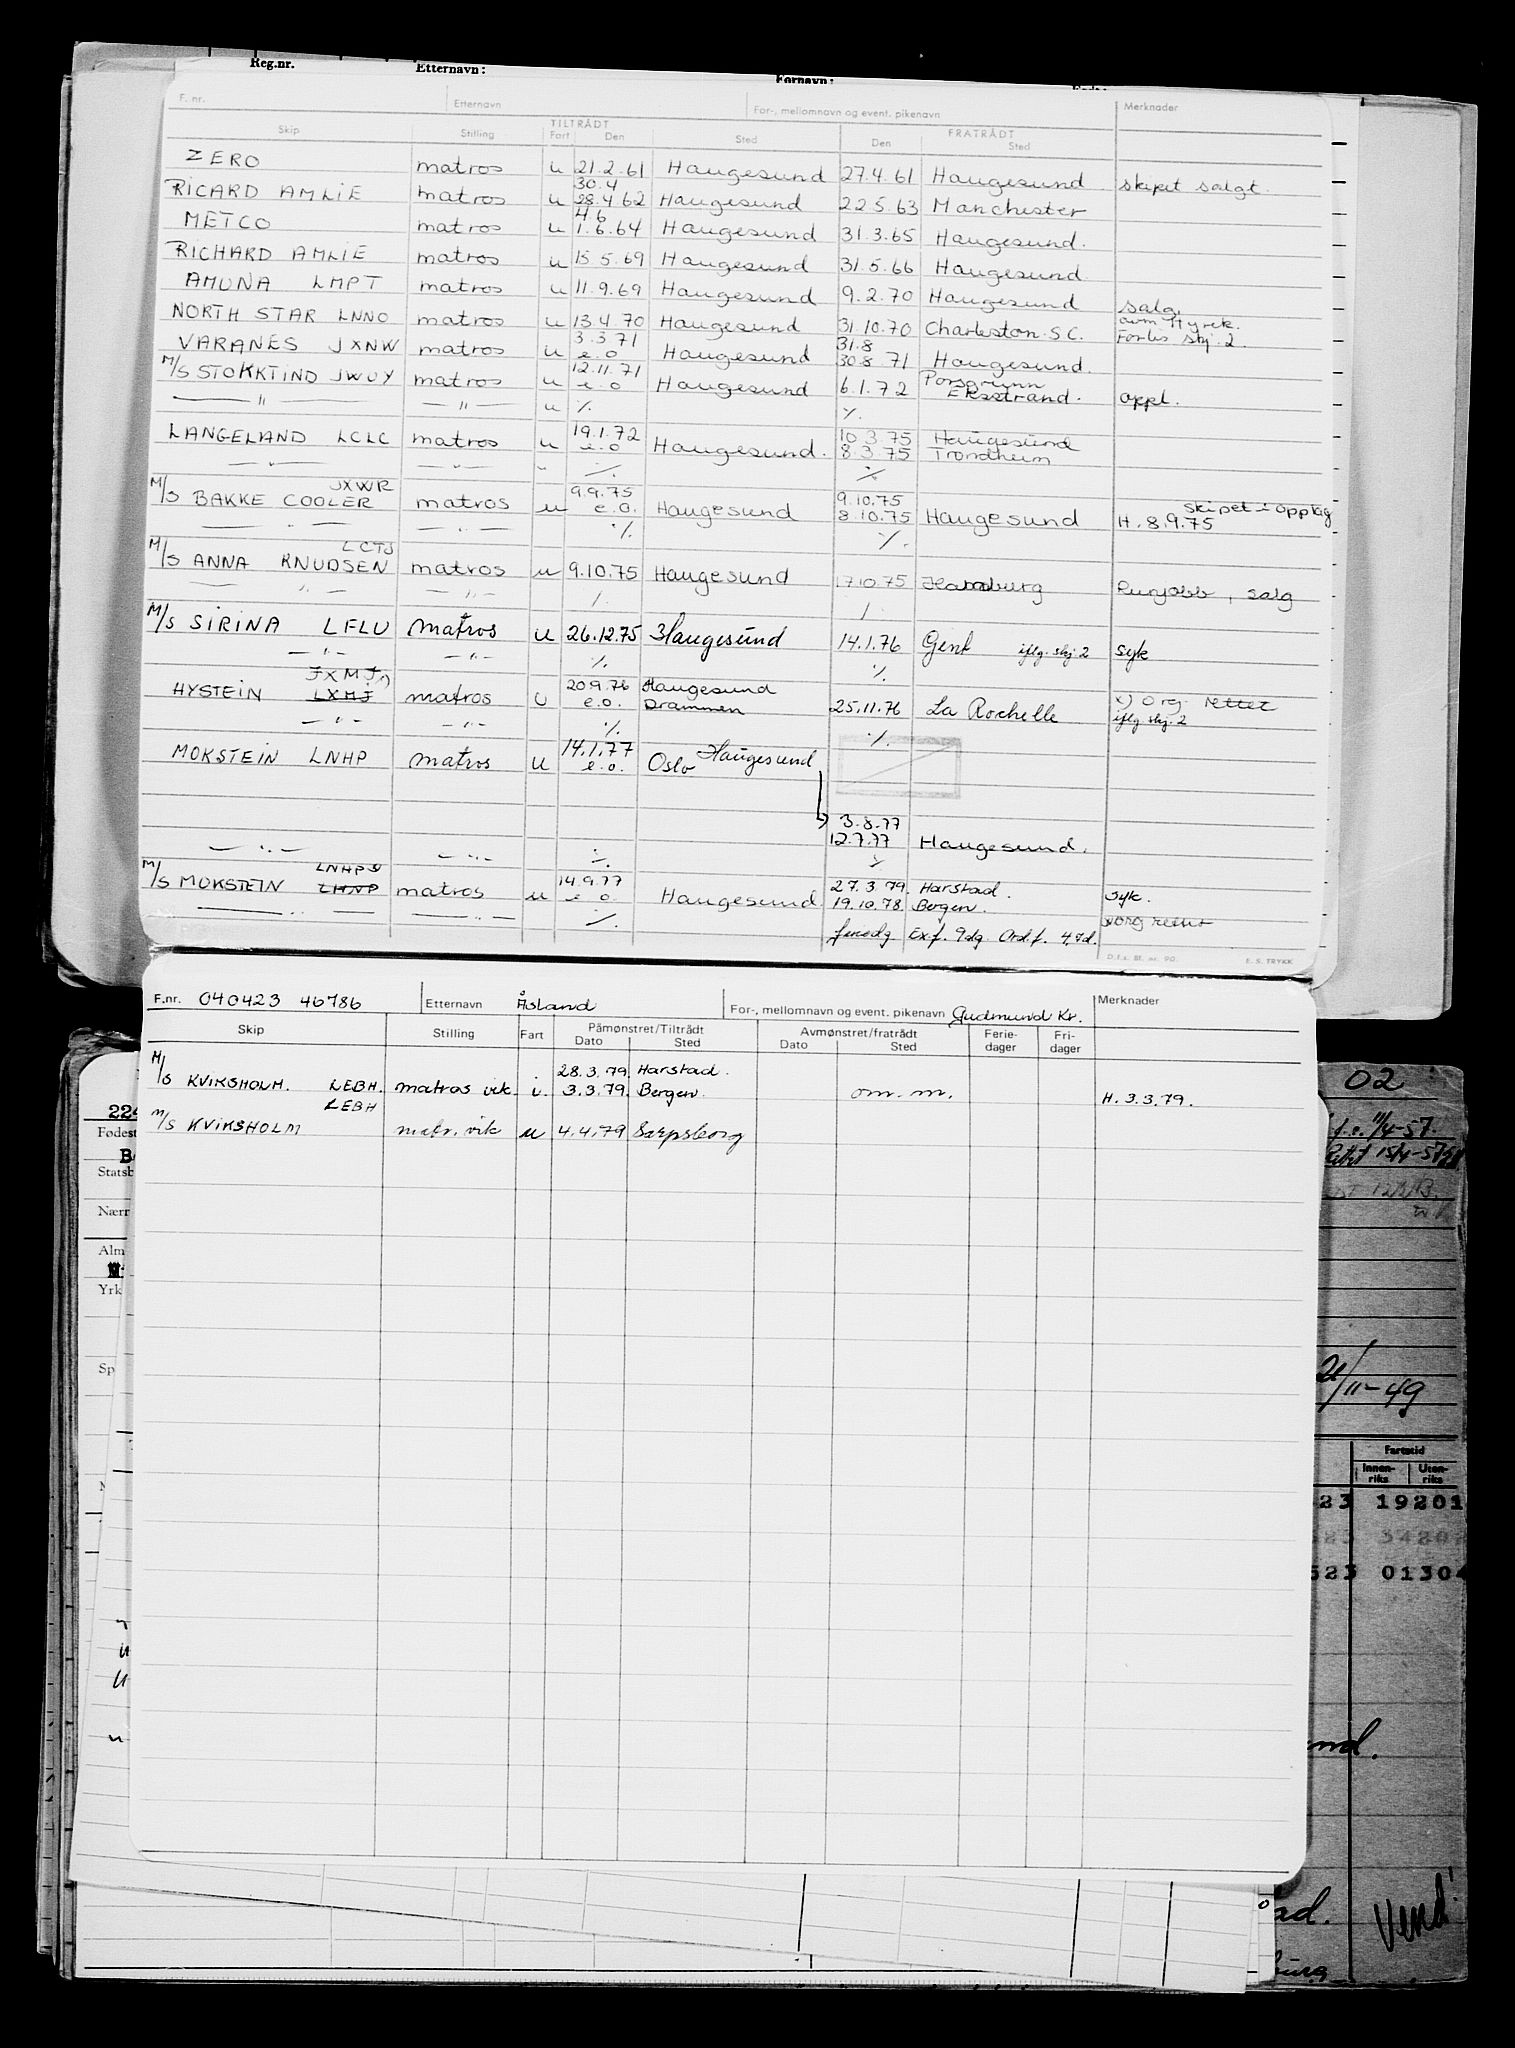 Reg.nr. Etternavn: Fornavn:
F. nr. Etternavn For-, mellomnavn og event. pikenavn Merknader
Skip Stilling TILTRÅDT FRATRÅDT
Fart Den Sted Den Sted
ZERO matros u 21.2.61 Haugesund 27.4.61 Haugesund skipet solgt.
30.4
RICARD AMLIE matros u 28.4.62 Haugesund 22.5.63 Manchester
4.6
METCO matros u 1.6.64 Haugesund 31.3.65 Haugesund.
RICHARD AMLIE matros u 15.5.69 Haugesund 31.5.66 Haugesund
AMUNA LMPT matros u 11.9.69 Haugesund 9.2.70 Haugesund salg.
NORTH STAR LNNO matros u 13.4.70 Haugesund 31.10.70 Charleston S.C.
3.3.71 31.8
VARANES JXNW matros u e.o Haugesund 30.8.71 Haugesund.
12.11.71 Porsgrunn
M/S STOKKTIND JWUY matros u e.o Haugesund 6.1.72 oppl.
— " — — " — u ٪ ٪
19.1.72 10.3.75 Haugesund
LANGELAND LCLC matros u e.o Haugesund. 8.3.75 Trondheim
— " — — " — " ٪ ٪
JXWR 9.9.75 9.10.75 skipet i opplag
M/S BAKKE COOLER matros u e.o. Haugesund 8.10.75 Haugesund H. 8.9.75
— " — — " — ٪ ٪.
LCTJ
M/S ANNA KNUDSEN matros u 9.10.75 Haugesund 17.10.75 Hamburg Runjobb, salg
— " — — " — /. /.
M/S SIRINA LFLU matros u 26.12.75 Haugesund 14.1.76 Gent iflg. skj 2 syk
— " — — " — ٪ ٪.
JXMJ x) 20.9.76 Haugesund
HYSTEIN LXMJ matros u e.o. Drammen 25.11.76 La Rochelle x) Org. rettet
iflg skj. 2
— " — — " — ٪ ٪.
14.1.77
MOKSTEIN LNHP matros u e.o. Oslo Haugesund
3.8.77
12.7.77 Haugesund.
— " — — " — ٪ ٪
LNHP 14.9.77 27.3.79. Harstad.
M/S MOKSTEIN LHNP matros u e o. Haugesund 19.10.78. Bergen. syk.
— " — — " — ٪ feriedg Ex.f. 9dg. Ord.f. 4,7d. org rettet
D.f.s. Bl. nr. 90. E. S. TRYKK
F.nr. 040423 46786 Etternavn Åsland For-, mellomnavn og event. pikenavn Gudmund Kr. Merknader
Skip Stilling Fart Påmønstret/Tiltrådt Avmønstret/fratrådt Ferie- Fri-
Dato Sted Dato Sted dager dager
28.3.79. Harstad.
M/S KVIKSHOLM. LEBH. matros vik. i. 3.3.79. Bergen. om. m. H. 3.3.79.
LEBH
M/S KVIKSHOLM matr. vik u 4.4.79 Sarpsborg
224
Fødest
Statsb
Nærr
Alm
Yrk
Sp
02
11/4-57.
Rettet 15/4-57
21/11-49
Fartstid
Innen- Uten-
riks riks
23 19201
23 34202
523 01304
Vend!